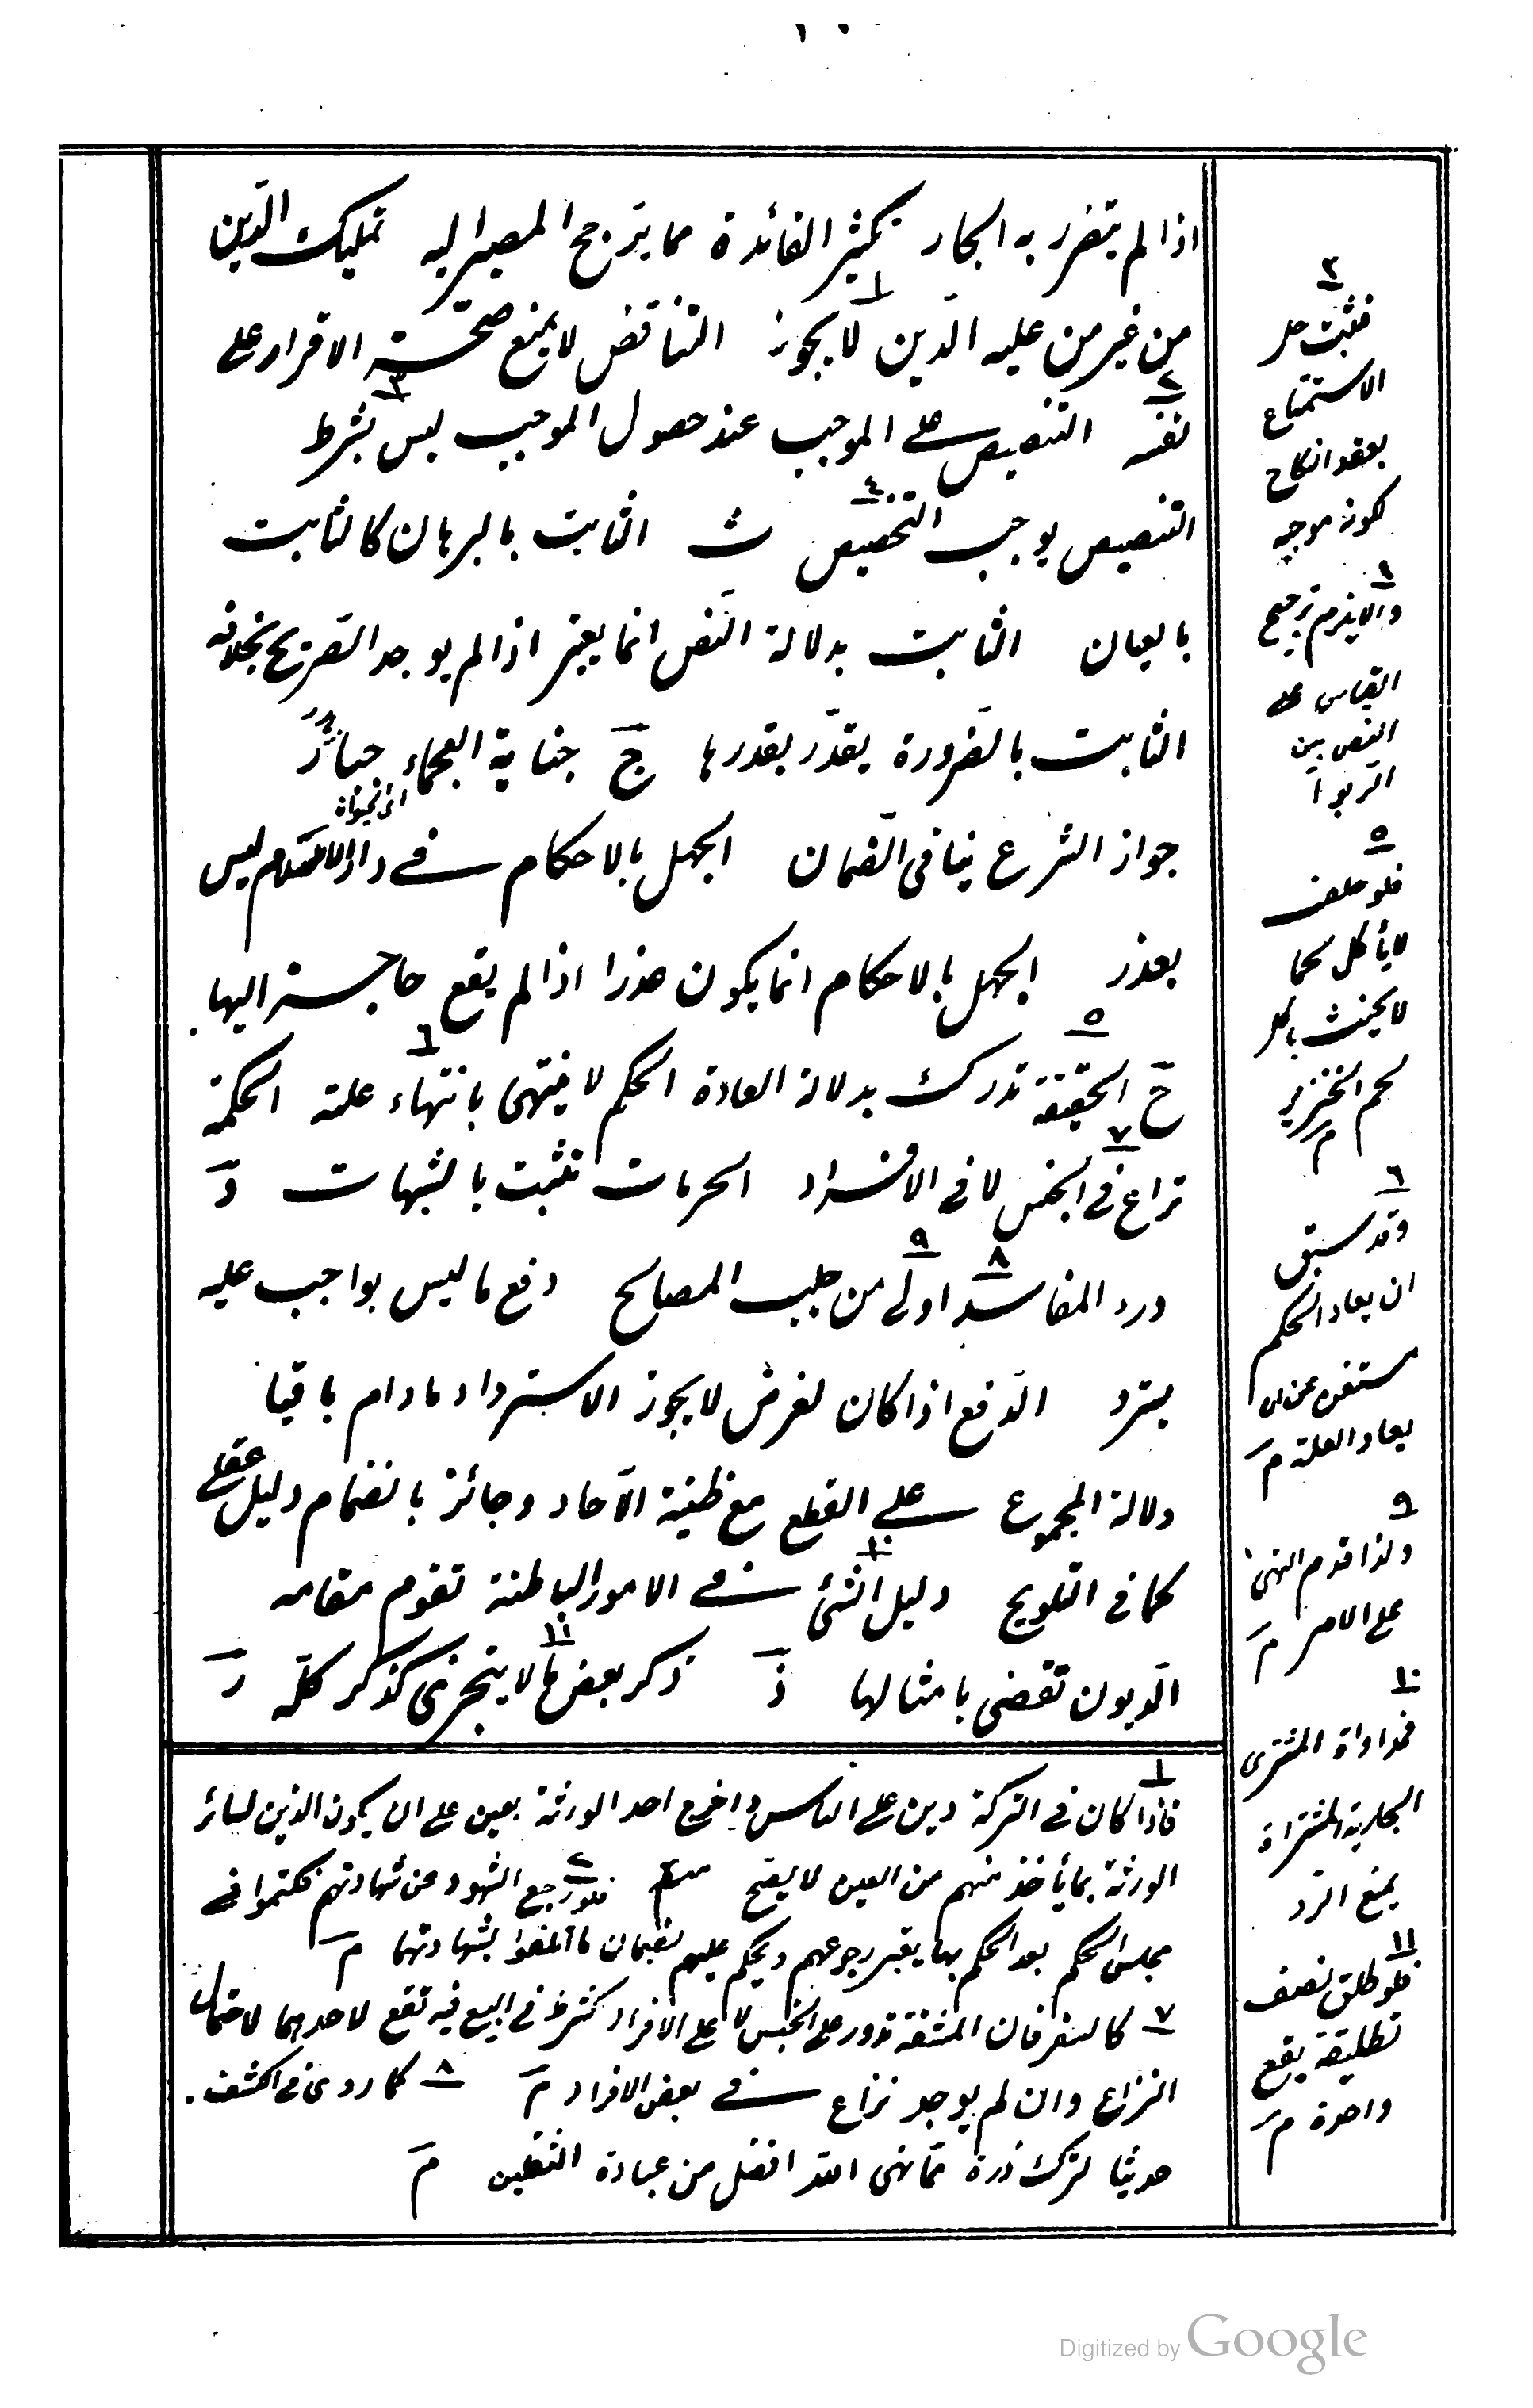 اذا لم يتضرر به الجار تكثير الفائدة مما يترجح المصير اليه تمليك الدّين
من غير من عليه الدّين لا يجوز ١ التناقض لا يمنع صحّة الاقرار على
نفسه ٢ التنصيص على الموجب عند حصول الموجب ليس بشرط ٣
التنصيص يوجب التخصيص ٤ ث الثابت بالبرهان كالثابت
بالعيان الثابت بدلالة النّص انما يعتبر اذا لم يوجد التصريح بخلافه
الثابت بالضّرورة يقدّر بقدرها ج جناية العجماء جبار هدر
جواز الشرع ينافى الضّمان الجهل بالاحكام فى دار الاسلام ليس
بعذر الجهل بالاحكام انما يكون عذرا اذا لم يقع حاجة اليها
ح الحقيقة تترك بدلالة العادة ٥ الحكم لا ينتهى بانتهاء علته ٦ الحكمة
تراعى فى الجنس لا فى الافراد ٧ الحرمات تثبت بالشبهات د
درء المفاسد ٨ اولى من جلب المصالح ٩ دفع ما ليس بواجب عليه
يسترد الدّفع اذا كان لغرض لا يجوز الاسترداد مادام باقيا
دلالة المجموع على القطع مع ظنية الآحاد وجائز بانضمام دليل عقلى
كما فى التلويح دليل الشئ فى الامور الباطنة تقوم مقامه ١٠
الدّيون تقضى بامثالها ذ ذكر بعض ما لا يتجزى كذكر كلّه ١١ ر
١ فاذا كان فى التركة دين على الناس واخرج احد الورثة بعين على ان يكون الدّين لسائر
الورثة بما يأخذ منهم من العين لا يصح ٢ فلو رجع الشهود عن شهادتهم فكتموا فى
مجلس الحكم بعد الحكم بها يعتبر رجوعهم ويحكم عليهم بضمان ما اتلفوا بشهادتهما م
٧ كالسفر فان المشقة تدور على الجنس لا على الافراد كشرط فى البيع فيه نفع لاحدهما لاحتمال
النزاع وان لم يوجد نزاع فى بعض الافراد م ٨ كما روى فى الكشف
حديثا لترك ذرة مّما نهى الله افضل من عبادة الثقلين م
٣
فثبت حل
الاستمتاع
بعقد النكاح
لكونه موجبه
والا يلزم ترجيح
القياس على
النص بين
الربوا
٥
فلو حلف
لا يأكل لحما
لا يحنث باكل
لحم الخنزير
م
٦
وقد سبق
ان بقاء الحكم
مستغن عن
بقاء العلة م
٩
ولذا قدم النهى
على الامر م
١٠
فمداواة المشترى
الجارية المشتراة
يمنع الرد
١١
فلو طلق نصف
تطليقة يقع
واحدة م
Digitized by Google